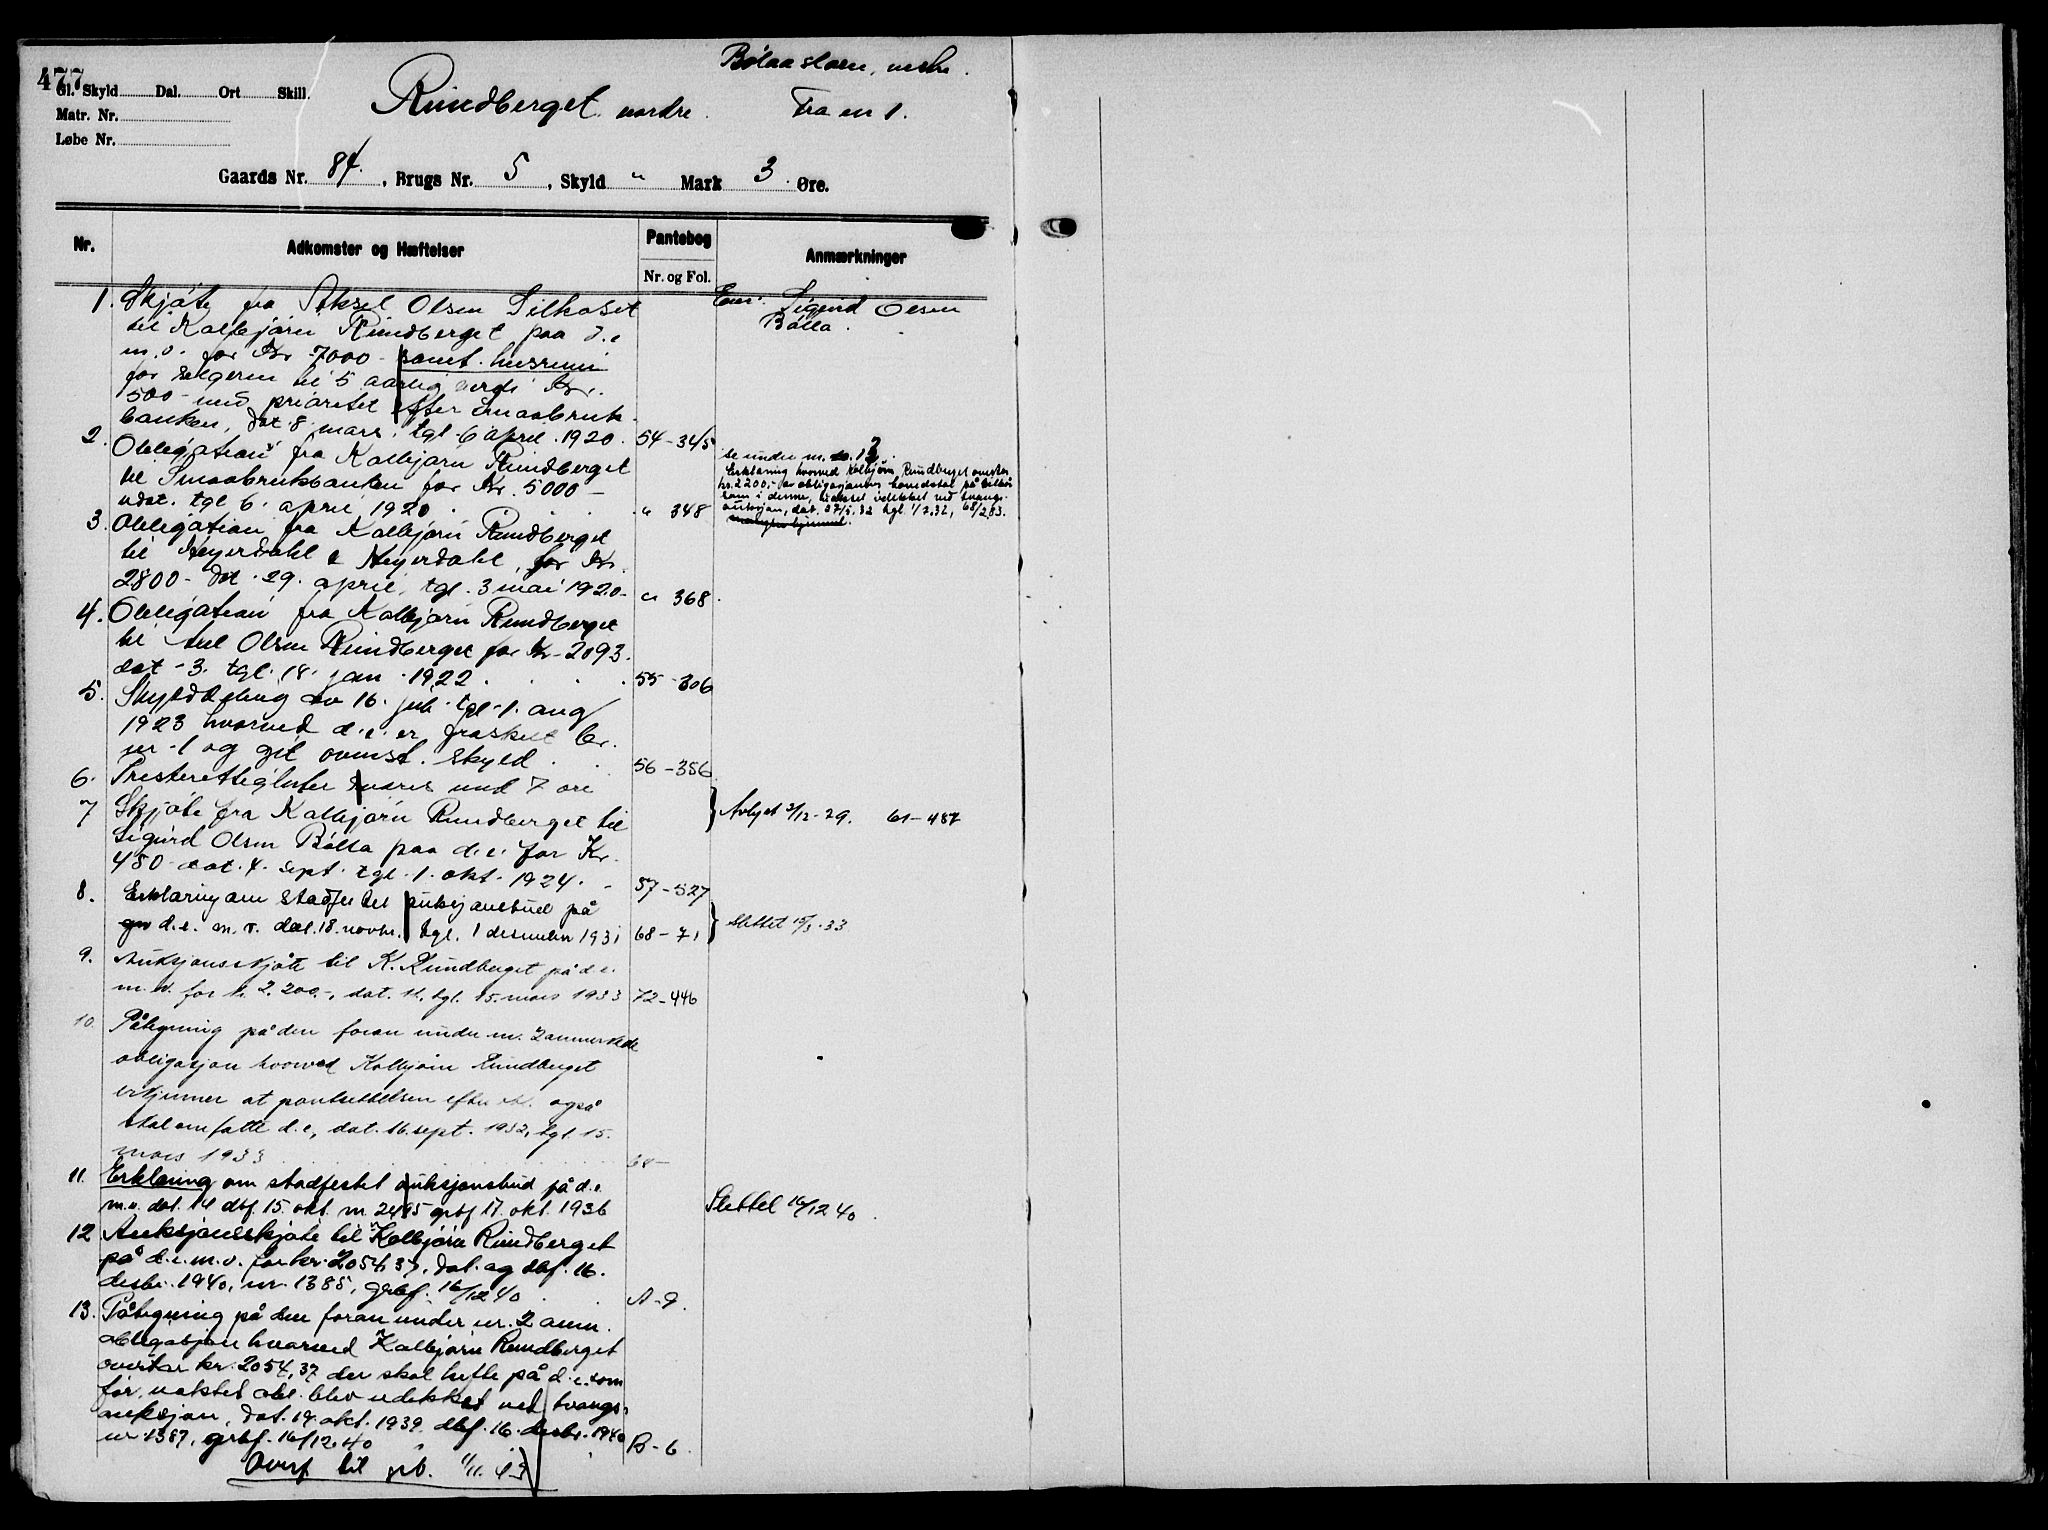 477
Gl. Skyld Dal. Ort Skill.
Matr. Nr.
Løbe Nr.
Rundberget nordre.
Bølaasloen, nedre.
Fra nr 1.
Gaards Nr. 84. , Brugs Nr. 5 , Skyld " Mark 3 Øre.
Nr. Adkomster og Hæftelser Pantebog Anmærkninger
Nr. og Fol.
1. Skjøte fra Aksel Olsen Silkoset
til Kolbjørn Rundberget paa d.e
m.v. for Kr 7000 - samt husrum
for selgeren til 5 aarlig verdi Kr.
500 - med prioritet efter Smaabruk-
banken, dat 8 mars, tgl. 6 april 1920. 54-345
Eier: Sigurd Olsen
Bólla.
2. Obligation fra Kolbjørn Rundberget
til Smaabrukbanken for Kr. 5000 -
udat. tgl 6. april 1920 . " 348
se under nr. 13
Erklæring hvorved Kolbjørn Rundberget overtar
kr. 2200,- av obligasjonens hovedstol på vilkår
som i denne, uanset udekket ved tvangs-
auksjon, dat. 27/5.32 tgl. 1/2.32, 68/283.
3. Obligation fra Kolbjørn Rundberget
til Heyerdahl & Heyerdahl, for Kr.
2800 - dat. 29. april, tgl. 3 mai 1920 - " 368.
4. Obligation fra Kolbjørn Rundberget
til Axel Olsen Rundberget for Kr - 2093.
dat - 3. tgl. 18. jan. 1922 . 55-306
5. Skylddeling av 16. juli tgl - 1. aug
1923 hvorved d.e. er fraskilt br.
nr - 1 og git ovenst. skyld . 56-356
6. Presterettigheter svares med 7 øre
7 Skjøte fra Kolbjørn Rundberget til
Sigurd Olsen Bólla paa d.e. for Kr.
450 - dat. 4. sept. tgl. 1. okt. 1924. - 57-527
Avlyst 2/12-29. 61-487
8. Erklæring om stadfestet auksjonsbud på
d.e. m.v. dat. 18. novbr. tgl. 1 desember 1931 68-71
Slettet 15/3.33
9. Auksjonsskjøte til K. Rundberget på d.e.
m.v. for kr. 2.200.-, dat. 11, tgl. 15. mars 1933 72-446
10. Påtegning på den foran under nr. 2 anmerkede
obligasjon hvorved Kolbjørn Rundberget
erkjenner at pantsettelsen efter obl. også
skal omfatte d.e, dat. 16. sept. 1932, tgl. 15.
mars 1933 68-
11. Erklæring om stadfestet auksjonsbud på d.e.
m.v. dat. 14 dbf. 15. okt. nr 2495 grbf 17. okt. 1936
Slettet 16/12 40.
12 Auksjonsskjøte til Kolbjørn Rundberget
på d.e. m.v. for kr. 2054,37, dat. og dbf. 16.
desbr. 1940, nr. 1385, grbf. 16/12 40 . A-9.
13. Påtegning på den foran under nr. 2 anm.
obligasjon hvorved Kolbjørn Rundberget
overtar kr. 2054,37 der skal hefte på d.e. som
før, uaktet obl. blev udekket ved tvangs-
auksjon, dat. 14. okt. 1939. dbf. 16. desbr. 1940
nr. 1387, grbf. 16/12.40 B-6.
Overf til grb. 1/11.43